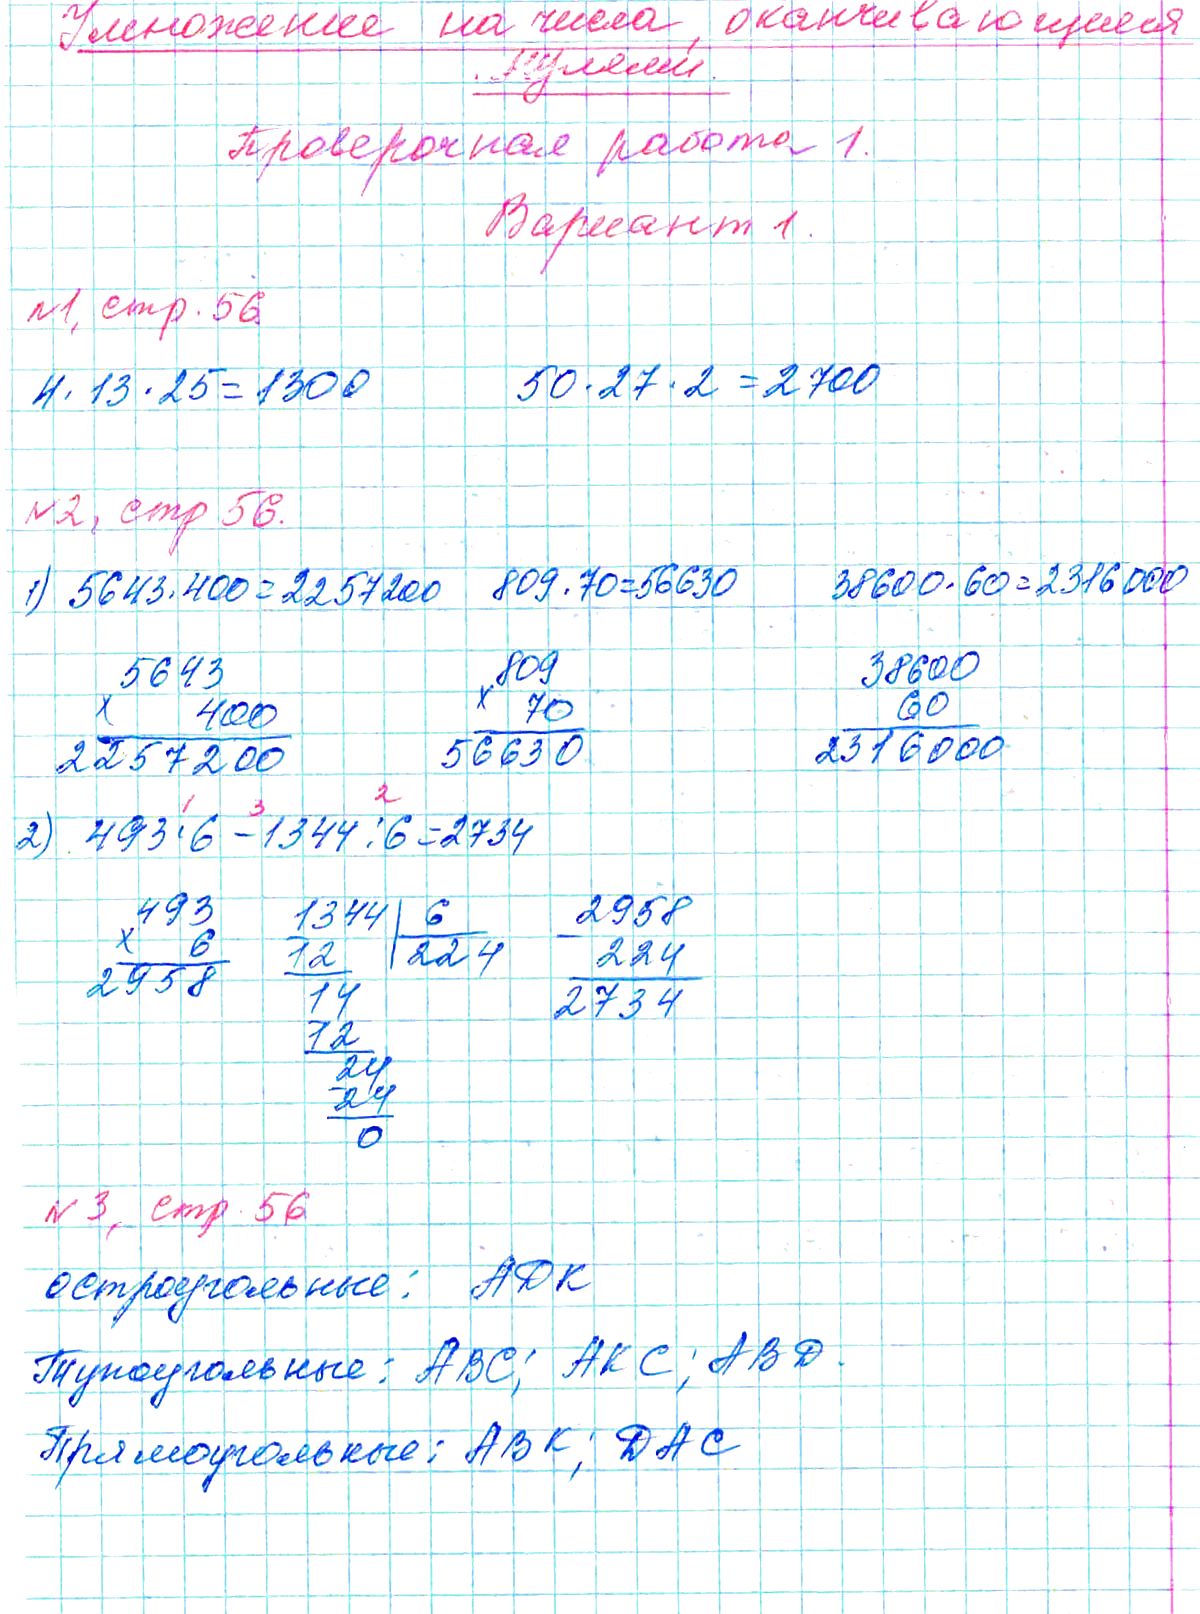 Умножение на числа, оканчивающиеся
нулями.
Проверочная работа 1.
Вариант 1.
№1, стр. 56
4 · 13 · 25 = 1300 50 · 27 · 2 = 2700
№2, стр 56.
1) 5643 · 400 = 2257200 809 · 70 = 56630 38600 · 60 = 2316000
5643 809 38600
× 400 × 70 60
2257200 56630 2316000
1 3 2
2) 493 · 6 - 1344 : 6 = 2734
493 1344 | 6 2958
× 6 12 224 - 224
2958 14 2734
12
24
24
0
№3, стр. 56
остроугольные: АДК
Тупоугольные: АВС; АКС; АВD.
Прямоугольные: АВК; DАС